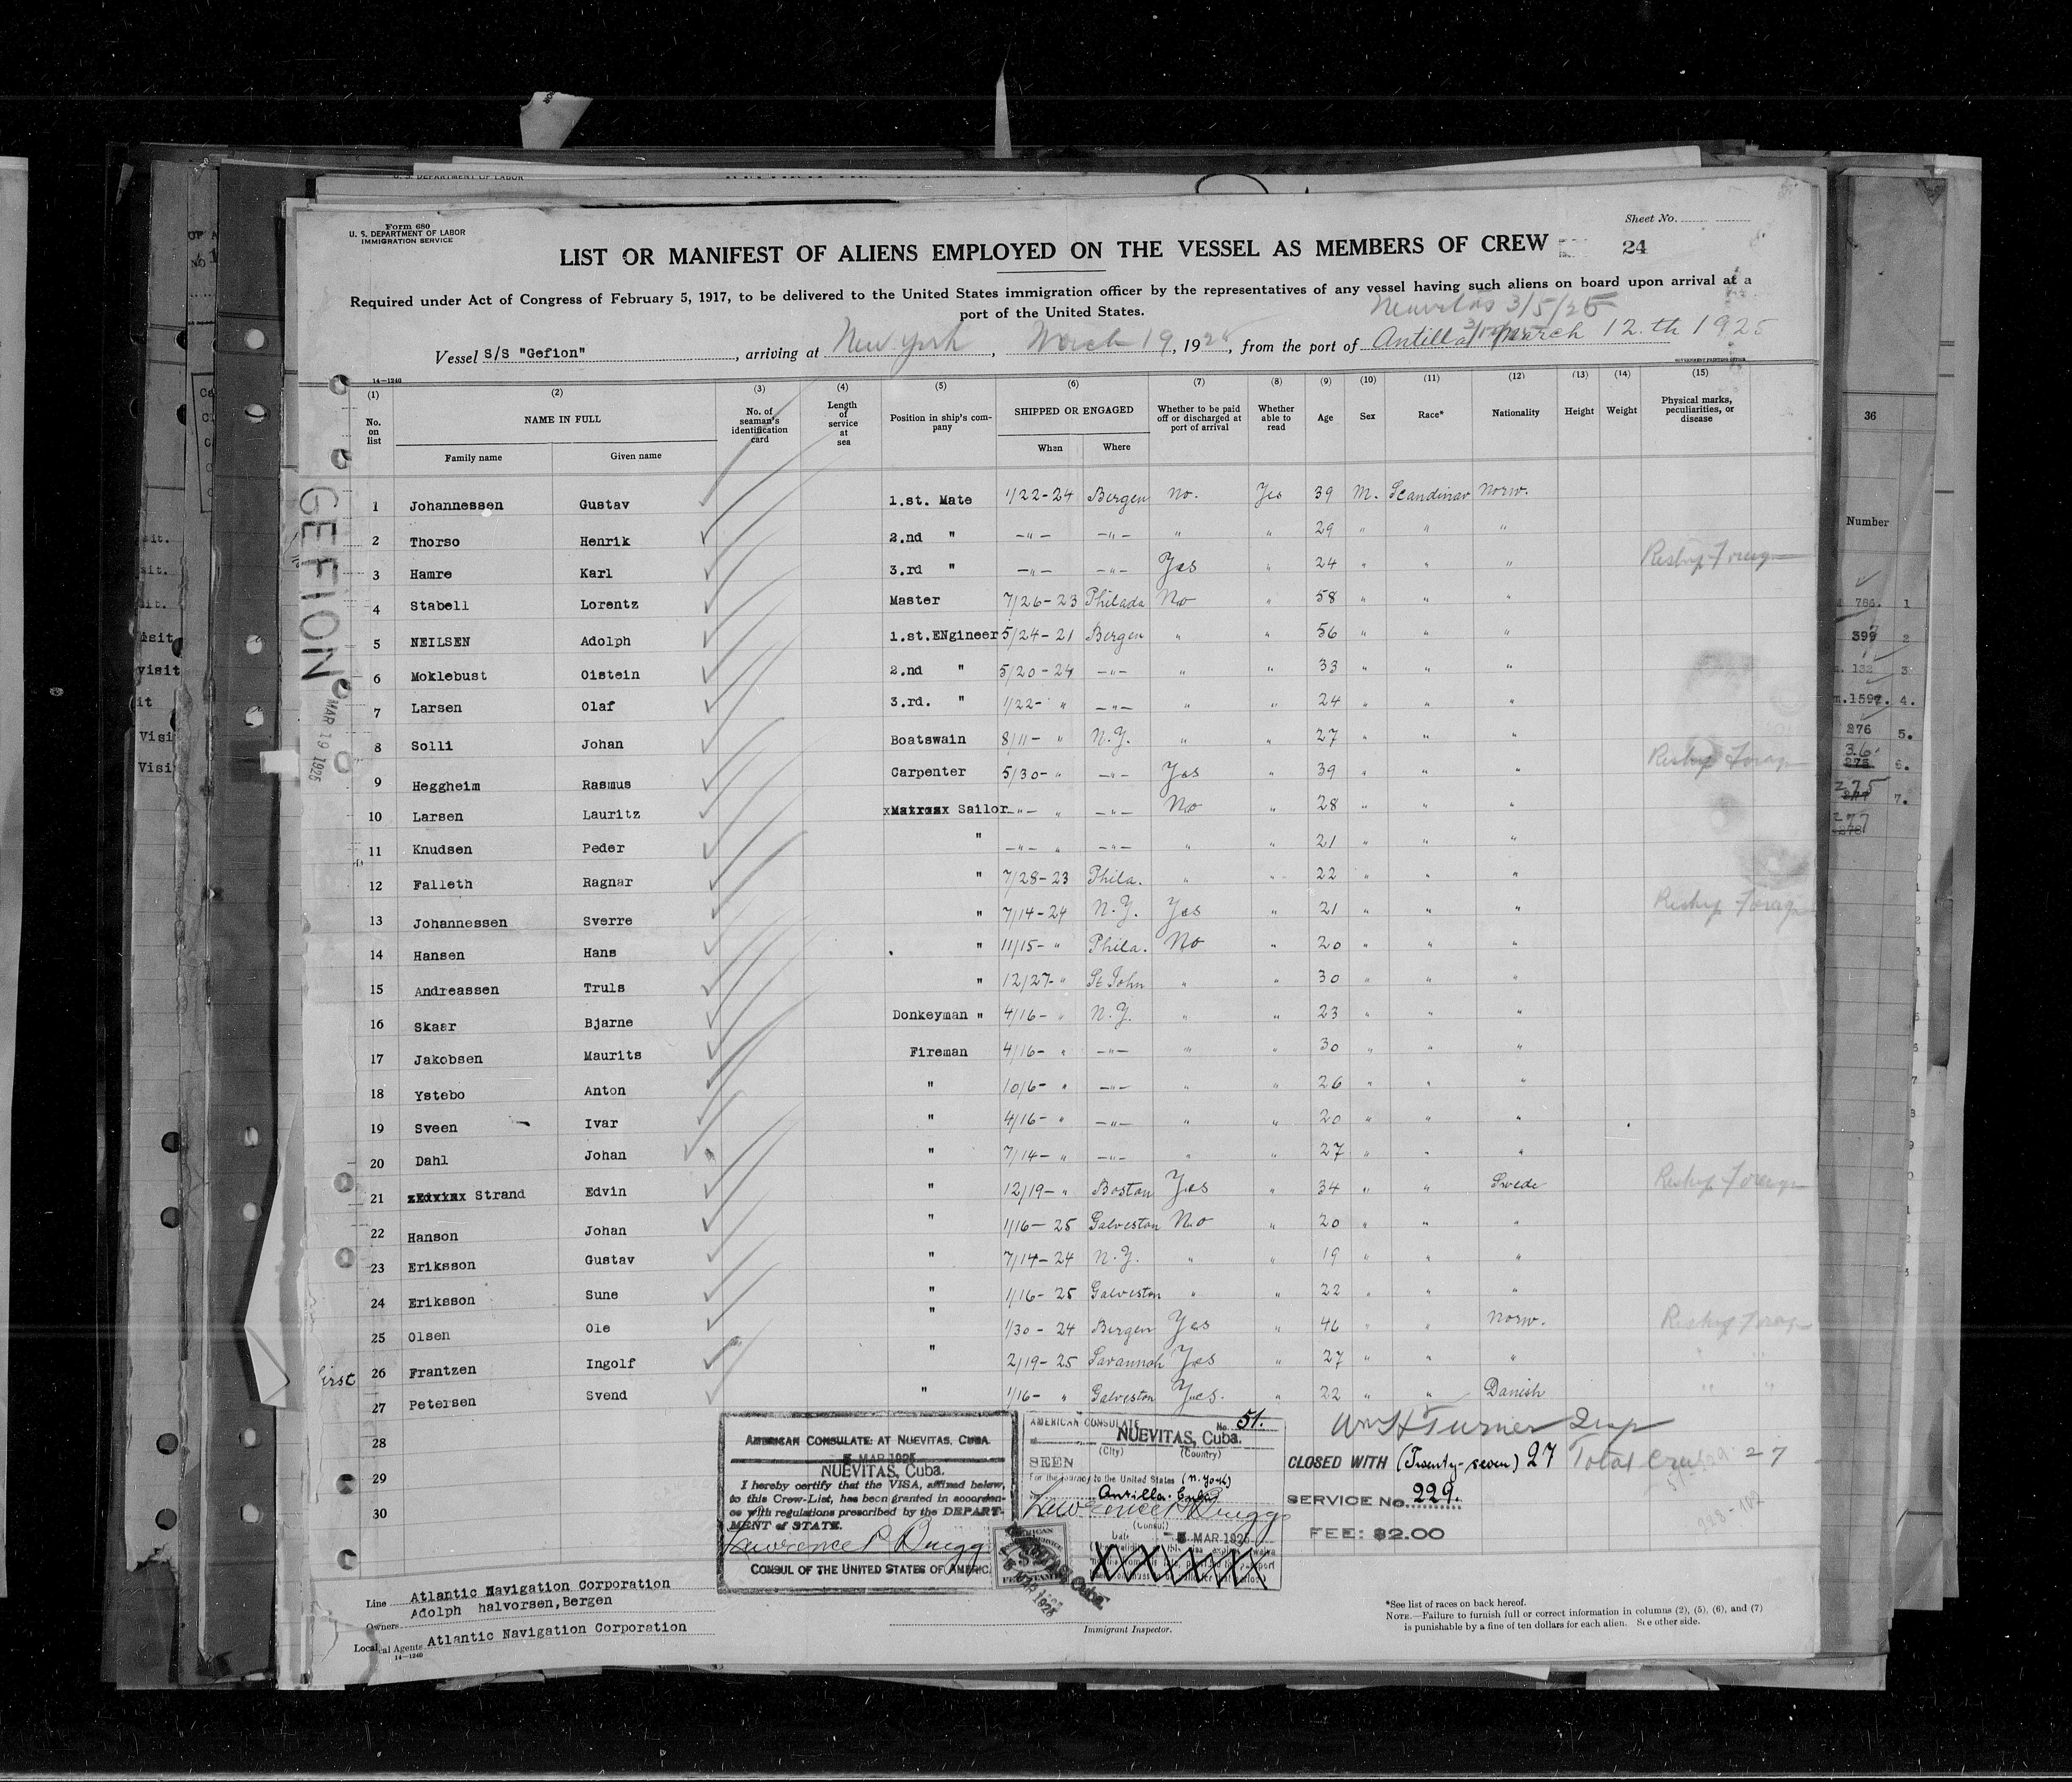 U. S. DEPARTMENT OF LABOR
Form 680
U. S. DEPARTMENT OF LABOR
IMMIGRATION SERVICE
Sheet No.
LIST OR MANIFEST OF ALIENS EMPLOYED ON THE VESSEL AS MEMBERS OF CREW 24
Required under Act of Congress of February 5, 1917, to be delivered to the United States immigration officer by the representatives of any vessel having such aliens on board upon arrival at a
port of the United States.
Nuevitas 3/5/25
Vessel S/S "Gefion", arriving at New York, March 19, 1925, from the port of Antilla March 12.th 1925
GOVERNMENT PRINTING OFFICE
14—1240
(1) (2) (3) (4) (5) (6) (7) (8) (9) (10) (11) (12) (13) (14) (15)
No. on list
NAME IN FULL
Family name Given name
No. of seaman's identification card
Length of service at sea
Position in ship's company
SHIPPED OR ENGAGED
When Where
Whether to be paid off or discharged at port of arrival
Whether able to read
Age Sex Race* Nationality Height Weight
Physical marks, peculiarities, or disease
1 Johannessen Gustav 1.st. Mate 1/22-24 Bergen No. Yes 39 M. Scandinav Norw.
2 Thorso Henrik 2.nd " —"— —"— " " 29 " " "
3 Hamre Karl 3.rd " —"— —"— Yes " 24 " " " Reship Foreign
4 Stabell Lorentz Master 7/26-23 Philada No " 58 " " "
5 NEILSEN Adolph 1.st.ENgineer 5/24-21 Bergen " " 56 " " "
6 Moklebust Oistein 2.nd " 5/20-24 —"— " " 33 " " "
7 Larsen Olaf 3.rd. " 1/22- " —"— " " 24 " " "
8 Solli Johan Boatswain 8/11- " N.Y. " " 27 " " "
9 Heggheim Rasmus Carpenter 5/30- " —"— Yes " 39 " " " Reship Foreign
10 Larsen Lauritz xMatrosx Sailor —"— " —"— No " 28 " " "
11 Knudsen Peder " —"— " —"— " " 21 " " "
12 Falleth Ragnar " 7/28-23 Phila. " " 22 " " "
13 Johannessen Sverre " 7/14-24 N.Y. Yes " 21 " " " Reship Foreign
14 Hansen Hans " 11/15- " Phila. No " 20 " " "
15 Andreassen Truls " 12/27- " St John " " 30 " " "
16 Skaar Bjarne Donkeyman " 4/16- " N.Y. " " 23 " " "
17 Jakobsen Maurits Fireman 4/16- " —"— " " 30 " " "
18 Ystebo Anton " 10/6- " —"— " " 26 " " "
19 Sveen Ivar " 4/16- " —"— " " 20 " " "
20 Dahl Johan " 7/14- " —"— " " 27 " " "
21 xEdvinx Strand Edvin " 12/19- " Boston Yes " 34 " " Swede Reship Foreign
22 Hanson Johan " 1/16- 25 Galveston No " 20 " " "
23 Eriksson Gustav " 7/14-24 N.Y. " " 19 " " "
24 Eriksson Sune " 1/16- 25 Galveston " " 22 " " "
25 Olsen Ole " 1/30- 24 Bergen Yes " 46 " " Norw. Reship Foreign
first 26 Frantzen Ingolf " 2/19-25 Savannah Yes " 27 " " " " "
27 Petersen Svend " 1/16- " Galveston Yes. " 22 " " Danish " "
28
29
30
GEFION
MAR 19 1925
AMERICAN CONSULATE AT NUEVITAS, CUBA.
5 MAR 1925
NUEVITAS, Cuba.
I hereby certify that the VISA, affixed below,
to this Crew-List, has been granted in accordan-
ce with regulations prescribed by the DEPART-
MENT of STATE.
CONSUL OF THE UNITED STATES OF AMERIC
AMERICAN CONSULATE No. 51.
at NUEVITAS, Cuba.
(City) (Country)
SEEN
For the journey to the United States (N. York)
Antilla. Cuba
(Consul)
Date 5 MAR. 1925
Wm H Turner Insp
CLOSED WITH (Twenty-seven) 27 Total Crew 27
SERVICE No. 229.
FEE: $2.00
Line Atlantic Navigation Corporation
Owners Adolph halvorsen, Bergen
Local Agents Atlantic Navigation Corporation
14—1240
Immigrant Inspector.
*See list of races on back hereof.
NOTE.—Failure to furnish full or correct information in columns (2), (5), (6), and (7)
is punishable by a fine of ten dollars for each alien. See other side.
36
Number